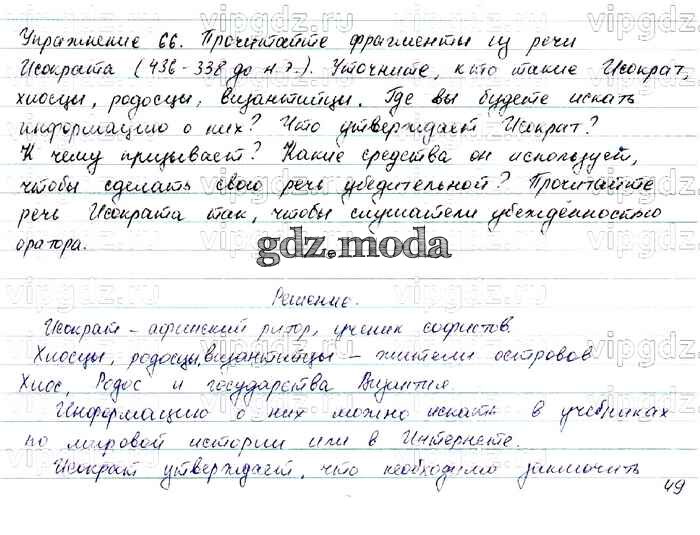 Упражнение 66. Прочитайте фрагменты из речи
Исократа (436-338 до н.э.). Уточните, кто такие Исократ,
хиосцы, родосцы, византийцы. Где вы будете искать
информацию о них? Что утверждает Исократ?
К чему призывает? Какие средства он использует,
чтобы сделать свою речь убедительной? Прочитайте
речь Исократа так, чтобы слушатели убеждённостью
оратора.
gdz.moda
Решение.
Исократ – афинский ритор, ученик софистов.
Хиосцы, родосцы, византийцы – жители островов
Хиос, Родос и государства Византия.
Информацию о них можно искать в учебниках
по мировой истории или в Интернете.
Исократ утверждает, что необходимо заключить
49
vipgdz.ru